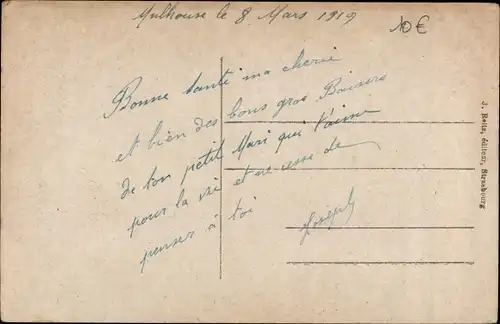 Mulhouse le 8 Mars 1919
10€
Bonne santé ma cherie
et bien des bons gros Baisers
de ton petit Mari qui t'aime
pour la vie et ne cesse de
penser à toi
Joseph
J. Beltz, éditeur, Strasbourg